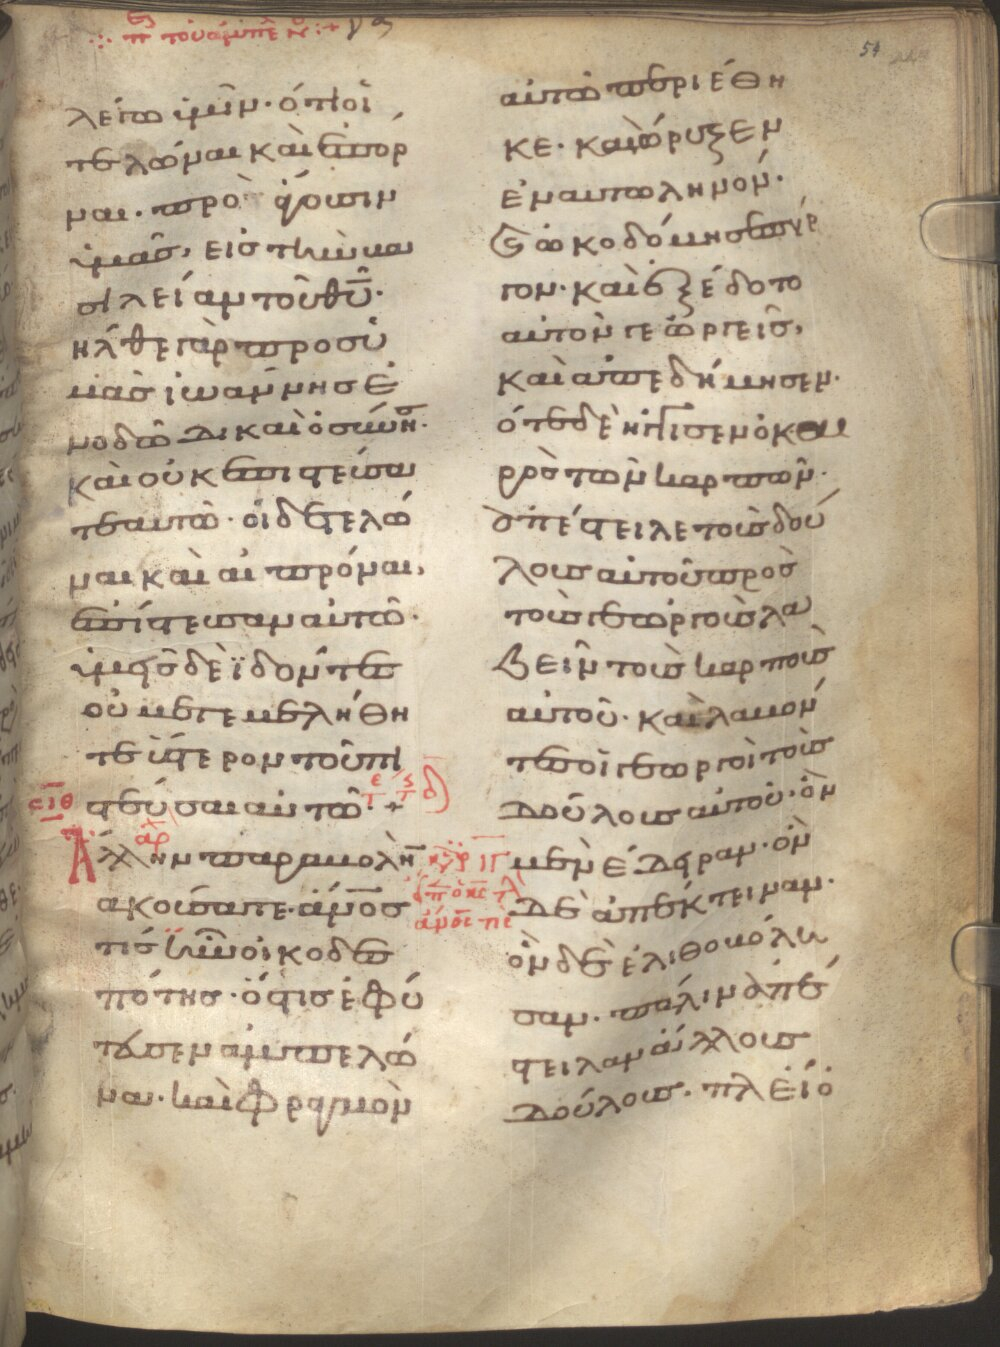 54
λέγω ὑμῖν· ὅτι οἱ
τελῶναι καὶ αἱ πόρ
ναι· προάγουσιν
ὑμᾶς, εἰς τὴν βα
σιλείαν τοῦ θ̅υ̅·
ἦλθε γὰρ πρὸς ὑ
μᾶς ἰωάννης ἐ
ν ὁδῶ δικαιοσύνης·
καὶ οὐκ ἐπιστεύσα
τε αὐτῶ· οἱ δὲ τελῶ
ναι καὶ αἱ πόρναι,
ἐπίστευσαν αὐτῶ·
ὑμεῖς δὲ ἰδόντες
οὐ μετεμελήθη
τε ὕστερον τοῦ πι
στεῦσαι αὐτῶ· +
Ἄλλην παραβολὴν
ἀκούσατε· ἄν̅ο̅ς
τίς ἦν οἰκοδεσ
πότης· ὅστις ἐφύ
τευσεν ἀμπελῶ
να· καὶ φραγμὸν
αὐτῶ περιέθη
κε· καὶ ὤρυξεν
ἐν αὐτῶ ληνόν·
καὶ ὠκοδόμησε πύρ
γον· καὶ ἐξέδοτο
αὐτὸν γεωργοῖς,
καὶ ἀπεδήμησεν·
ὅτε δὲ ἤγγισεν ὁ και
ρὸς τῶν καρπῶν·
ἀπέστειλε τοὺς δού
λους αὐτοῦ πρὸς
τοὺς γεωργοὺς λα
βεῖν τοὺς καρποὺς
αὐτοῦ· καὶ λαβόν
τες οἱ γεωργοὶ τοὺς
δούλους αὐτοῦ· ὃν
μὲν ἔδειραν· ὃν
δὲ ἀπέκτειναν·
ὃν δὲ ἐλιθοβόλη
σαν· πάλιν ἀπέ
στειλαν ἄλλους
δούλους· πλείο